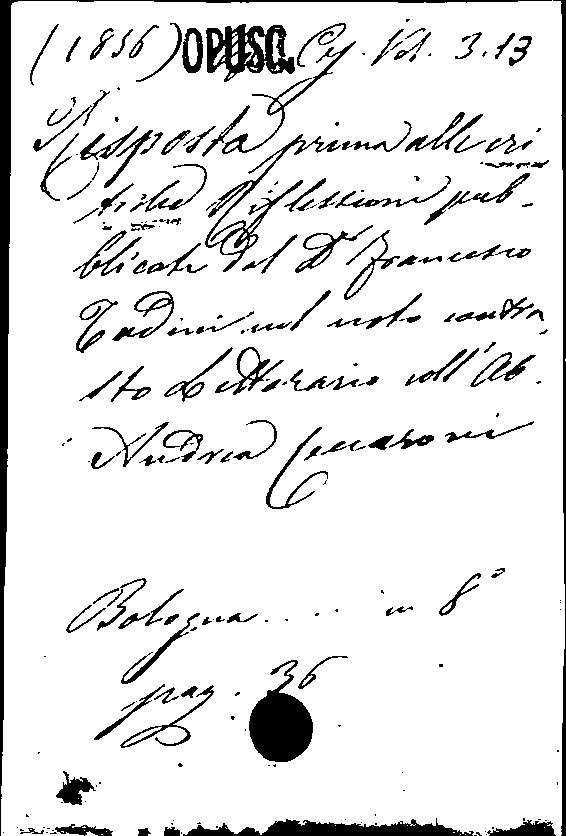 (1856) OPUSC. Cy. Vol. 3.13
Risposta prima alle cri
tiche Riflessioni pub-
blicate dal Dr Francesco
Tadini nel noto contra
sto Letterario coll' Ab.
Andrea Ceccaroni
Bologna . . . . in 8°
pag. 36